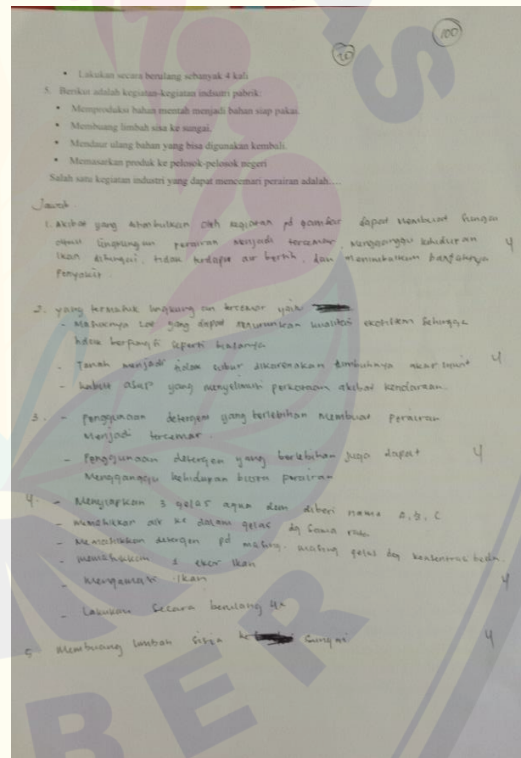 100
20
• Lakukan secara berulang sebanyak 4 kali
5. Berikut adalah kegiatan-kegiatan industri pabrik:
• Memproduksi bahan mentah menjadi bahan siap pakai.
• Membuang limbah sisa ke sungai.
• Mendaur ulang bahan yang bisa digunakan kembali.
• Memasarkan produk ke pelosok-pelosok negeri
Salah satu kegiatan industri yang dapat mencemari perairan adalah....
Jawab
1. Akibat yang ditimbulkan oleh kegiatan pd gambar dapat membuat sungai
lingkungan perairan menjadi tercemar, mengganggu kehidupan 4
ikan disungai, tidak terdapat air bersih, dan menimbulkan banyaknya
penyakit.
2. yang termasuk lingkungan tercemar yaitu
- yang dapat menurunkan kualitas ekosistem sehingga
tidak berfungsi seperti
- Tanah menjadi tidak subur dikarenakan akar 4
- asap yang menyelimuti perkotaan akibat kendaraan.
3. - Penggunaan detergen yang berlebihan membuat perairan
menjadi tercemar.
- Penggunaan detergen yang berlebihan juga dapat 4
Mengganggu kehidupan biota perairan
4. - Menyiapkan 3 gelas aqua dan diberi nama A, B, C
- air ke dalam gelas dg sama rata.
- Memasukkan detergen pd masing-masing gelas dg konsentrasi beda.
- memasukkan ekor ikan
- Mengamati ikan 4
- Lakukan secara berulang 4x
5. Membuang limbah sisa ke sungai 4
BER